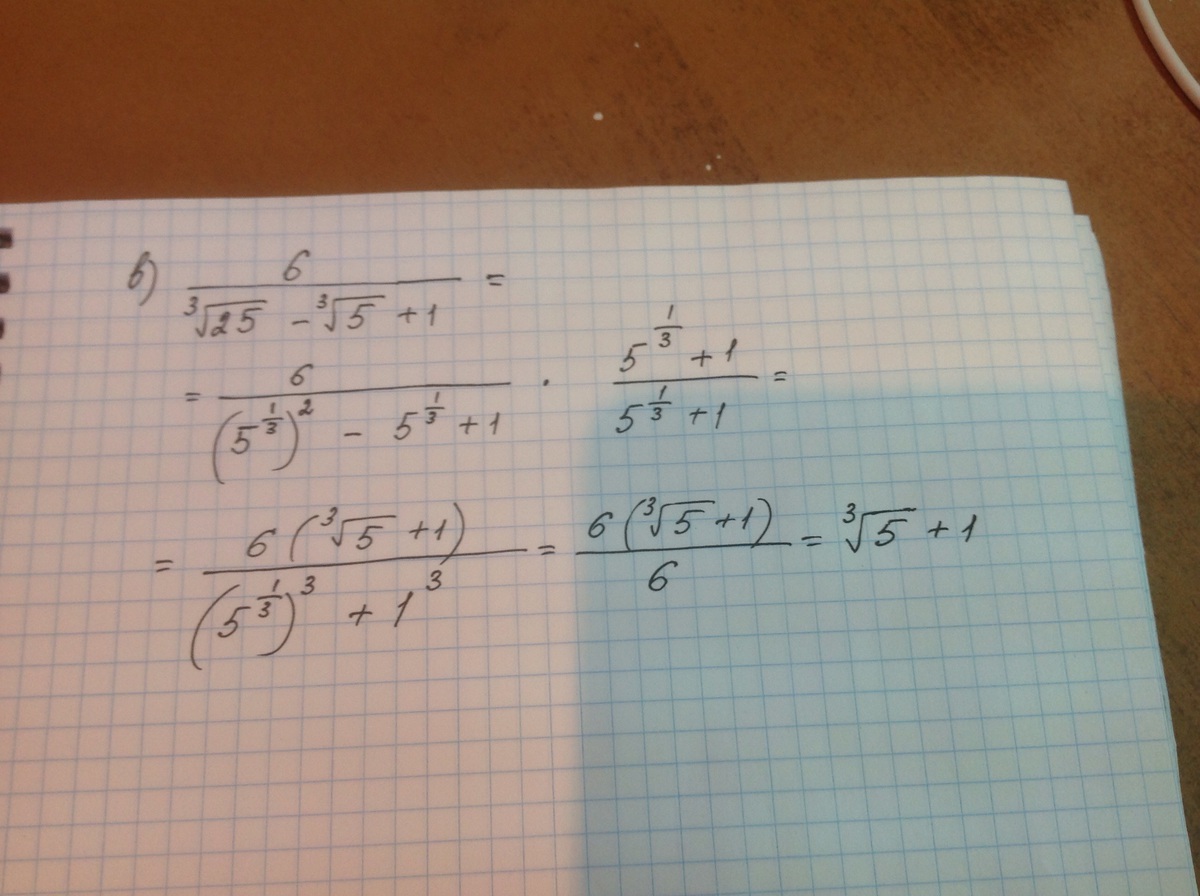 в) \frac{6}{\sqrt[3]{25} - \sqrt[3]{5} + 1} =
= \frac{6}{(5^{\frac{1}{3}})^2 - 5^{\frac{1}{3}} + 1} \cdot \frac{5^{\frac{1}{3}} + 1}{5^{\frac{1}{3}} + 1} =
= \frac{6(\sqrt[3]{5} + 1)}{(5^{\frac{1}{3}})^3 + 1^3} = \frac{6(\sqrt[3]{5} + 1)}{6} = \sqrt[3]{5} + 1